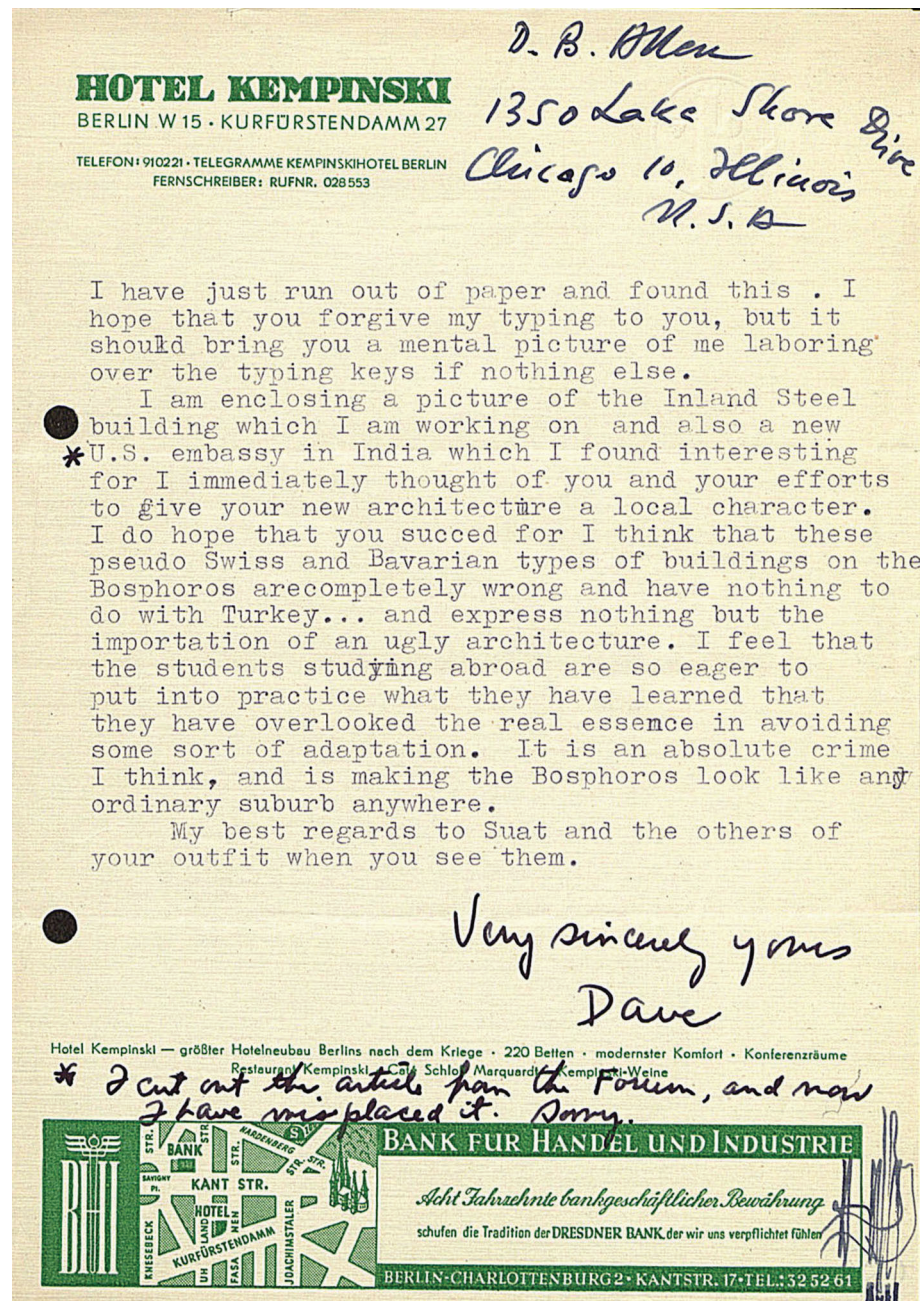 D. B. Allen
1350 Lake Shore Drive
Chicago 10, Illinois
U.S.A
HOTEL KEMPINSKI
BERLIN W 15 · KURFÜRSTENDAMM 27
TELEFON: 910221 · TELEGRAMME KEMPINSKIHOTEL BERLIN
FERNSCHREIBER: RUFNR. 028553
I have just run out of paper and found this . I
hope that you forgive my typing to you, but it
should bring you a mental picture of me laboring
over the typing keys if nothing else.
I am enclosing a picture of the Inland Steel
building which I am working on and also a new
* U.S. embassy in India which I found interesting
for I immediately thought of you and your efforts
to give your new architecture a local character.
I do hope that you succed for I think that these
pseudo Swiss and Bavarian types of buildings on the
Bosphoros arecompletely wrong and have nothing to
do with Turkey... and express nothing but the
importation of an ugly architecture. I feel that
the students studying abroad are so eager to
put into practice what they have learned that
they have overlooked the real essence in avoiding
some sort of adaptation. It is an absolute crime
I think, and is making the Bosphoros look like any
ordinary suburb anywhere.
My best regards to Suat and the others of
your outfit when you see them.
Very sincerely yours
Dave
Hotel Kempinski — größter Hotelneubau Berlins nach dem Kriege · 220 Betten · modernster Komfort · Konferenzräume
Restaurant Kempinski · Café Schloß Marquardt · Kempinski-Weine
* I cut out the article from the Forum, and now
I have misplaced it. Sorry.
BHI
STR.
BANK
STR.
HARDENBERG STR.
STR.
SAVIGNY PL.
KANT STR.
HOTEL
KNESEBECK
UHLAND
FASANEN
KURFÜRSTENDAMM
JOACHIMSTALER
BANK FÜR HANDEL UND INDUSTRIE
Acht Jahrzehnte bankgeschäftlicher Bewährung
schufen die Tradition der DRESDNER BANK der wir uns verpflichtet fühlen
BERLIN-CHARLOTTENBURG 2 · KANTSTR. 17 · TEL.: 32 52 61